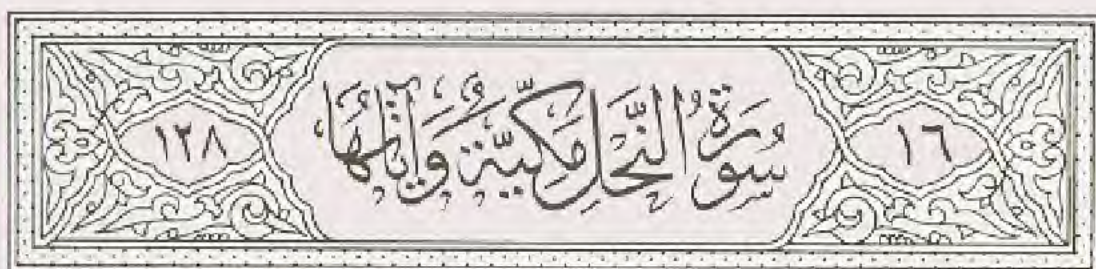 ١٦ سُورَةُ النَّحْلِ مَكِّيَّة وَآيَاتُهَا ١٢٨